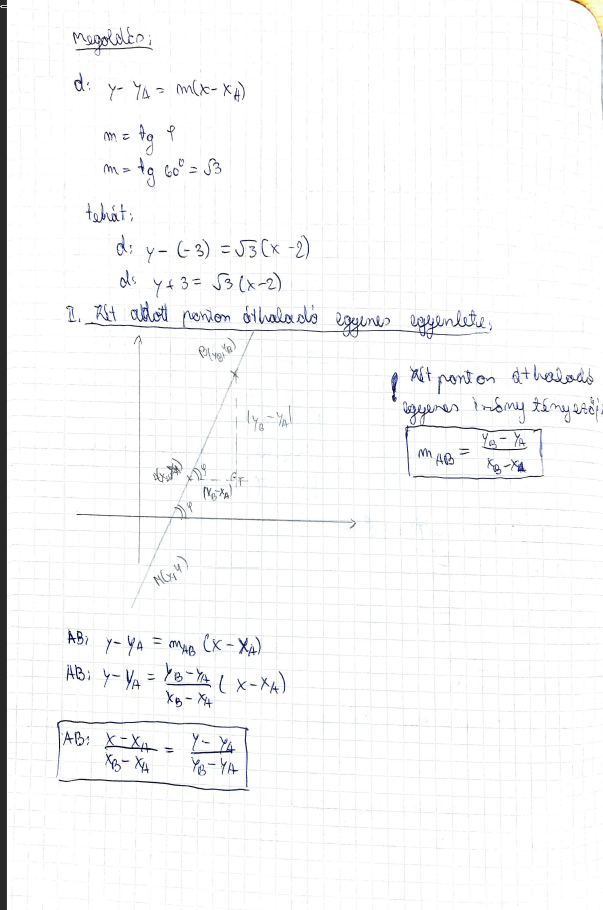 Megoldás:
d: y - y_A = m(x - x_A)
m = tg φ
m = tg 60° = √3
tehát:
d: y - (-3) = √3(x - 2)
d: y + 3 = √3(x - 2)
II. Két adott ponton áthaladó egyenes egyenlete:
B(x_B, y_B)
! Két ponton áthaladó
egyenes iránytényezőj
|y_B - y_A|
m_AB = (y_B - y_A)/(x_B - x_A)
φ
|x_B - x_A|
φ
M(x, y)
AB: y - y_A = m_AB (x - x_A)
AB: y - y_A = (y_B - y_A)/(x_B - x_A) (x - x_A)
AB: (x - x_A)/(x_B - x_A) = (y - y_A)/(y_B - y_A)